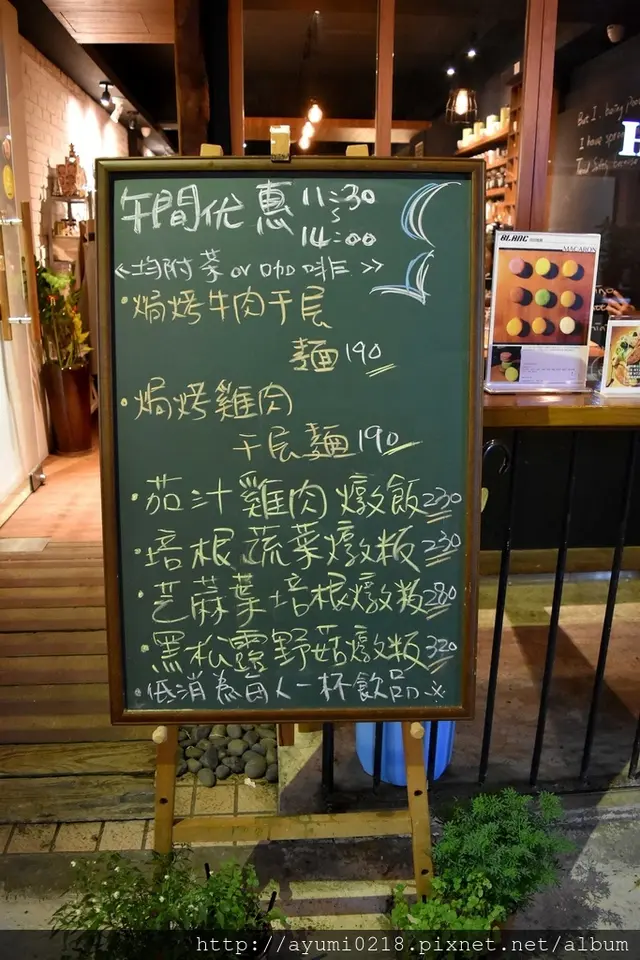 午間优惠 11:30
~
14:00
<<均附菜or咖啡>>
·焗烤牛肉千层
麵190
·焗烤雞肉
千层麵190
·茄汁雞肉燉飯230
·培根蔬菜燉飯230
·芝蔴葉培根燉飯280
·黑松露野菇燉飯320
·低消為每人一杯飲品※
BLANC
MACARON
But I, being poor
http://ayumi0218.pixnet.net/album